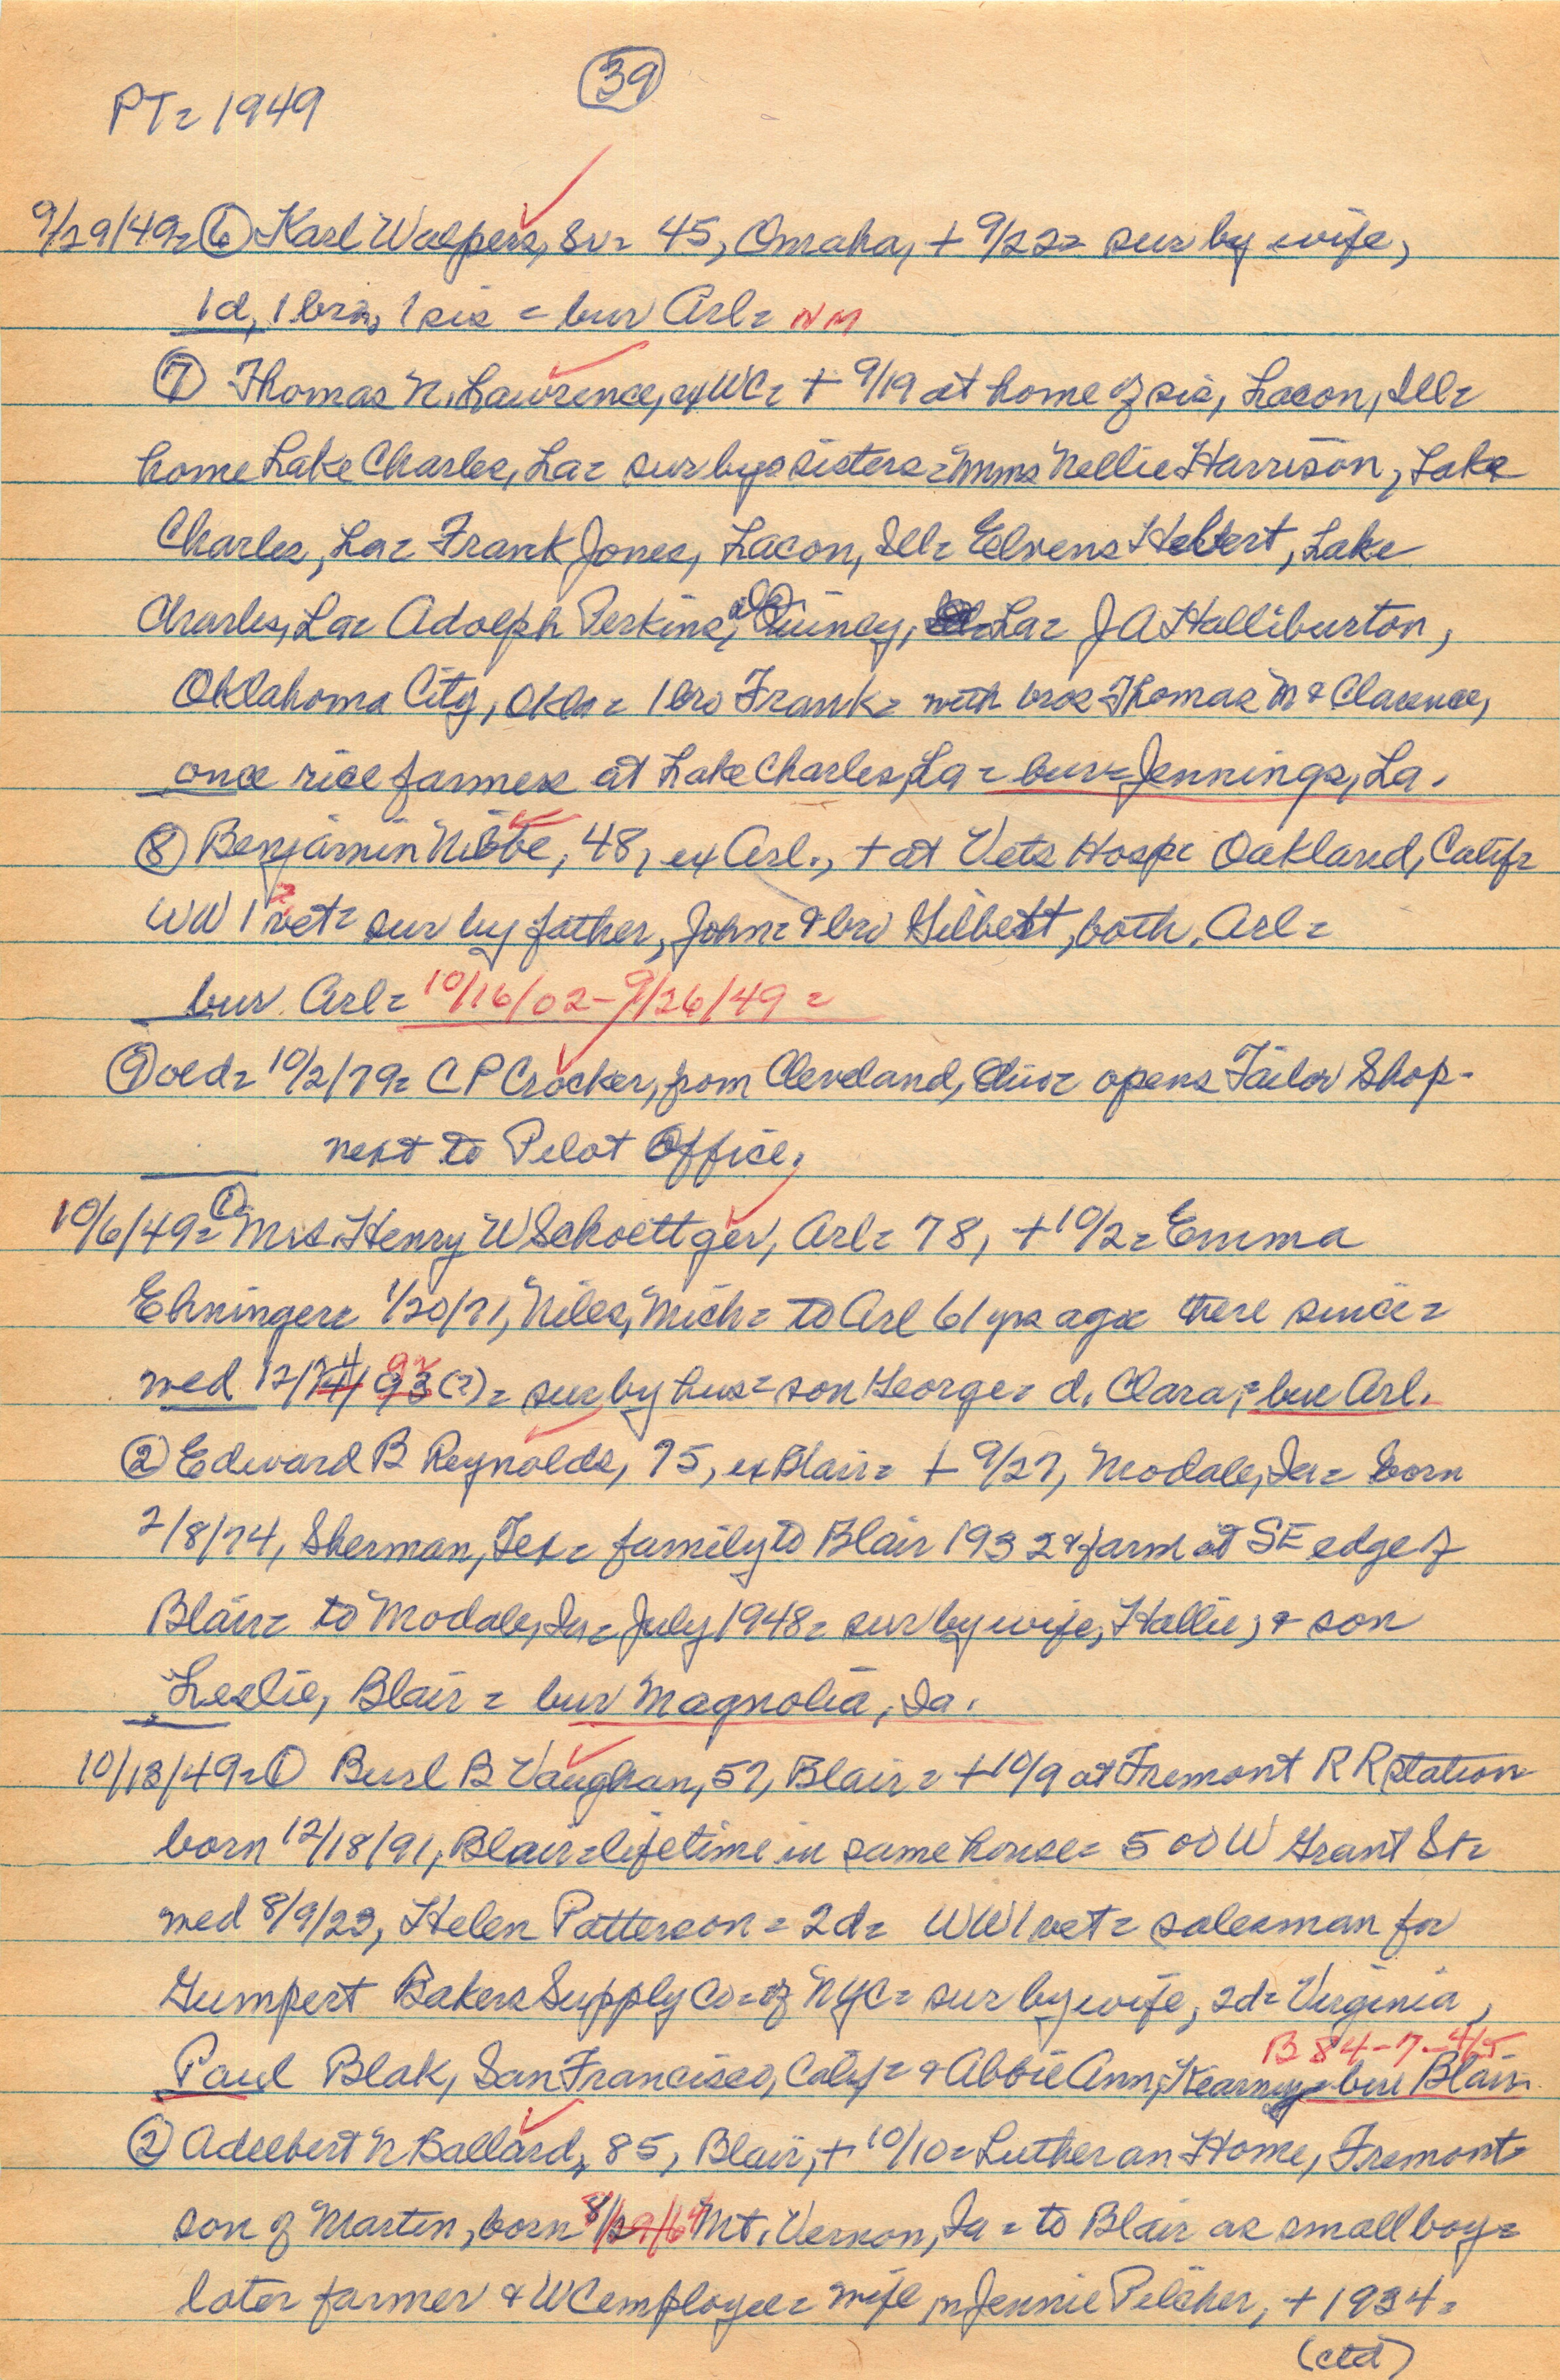 39
PT= 1949
9/29/49= 6 Karl Walpers, Sr= 45, Omaha, + 9/22= sur by wife,
1d, 1 bro, 1 sis = bur Arl= NM
7 Thomas N. Lawrence, exWC= + 9/19 at home of sis, Lacon, Ill=
home Lake Charles, La= sur by 5 sisters= Mmes Nellie Harrison, Lake
Charles, La= Frank Jones, Lacon, Ill= Elvens Hebert, Lake
Charles, La= Adolph Perkins, Quincy, La= J A Halliburton,
Oklahoma City, Okla= 1 bro Frank= with bros Thomas M & Clarence,
once rice farmers at Lake Charles, La = bur= Jennings, La.
8 Benjamin Nibbe, 48, ex Arl., + at Vets Hosp= Oakland, Calif=
WW 1 ? vet= sur by father, John= & bro Gilbert, both, Arl=
bur Arl= 10/16/02-9/26/49=
9 old= 10/2/79= C P Crocker, from Cleveland, Ohio= opens Tailor Shop-
next to Pilot Office.
10/6/49= 1 Mrs. Henry W Schoettger, Arl= 78, + 10/2= Emma
Ehninger= 1/20/71, Niles, Mich= to Arl 61 yrs ago= there since=
med 12/ 93 (?)= sur by hus= son George= d. Clara,= bur Arl.
2 Edward B Reynolds, 75, ex Blair= + 9/27, Modale, Ia= born
2/8/74, Sherman, Tex= family to Blair 1932 & farm at SE edge of
Blair= to Modale, Ia= July 1948= sur by wife, Hallie, & son
Leslie, Blair = bur Magnolia, Ia.
10/13/49= 1 Burl B Vaughan, 57, Blair= + 10/9 at Fremont R R station
born 12/18/91, Blair= lifetime in same house= 500 W Grant St=
med 8/9/23, Helen Patterson= 2d= WW1 vet= salesman for
Gumpert Bakers Supply Co= of NYC= sur by wife, 2d= Virginia,
B 84-7-4/5
Paul Blak, San Francisco, Calif= & Abbie Ann, Kearney= bur Blair
2 Adelbert N Ballard, 85, Blair, + 10/10= Lutheran Home, Fremont=
son of Martin, born 8/29/64 Mt. Vernon, Ia = to Blair as small boy=
later farmer & WC employee= wife, m Jennie Pilcher, + 1934=
(ctd)